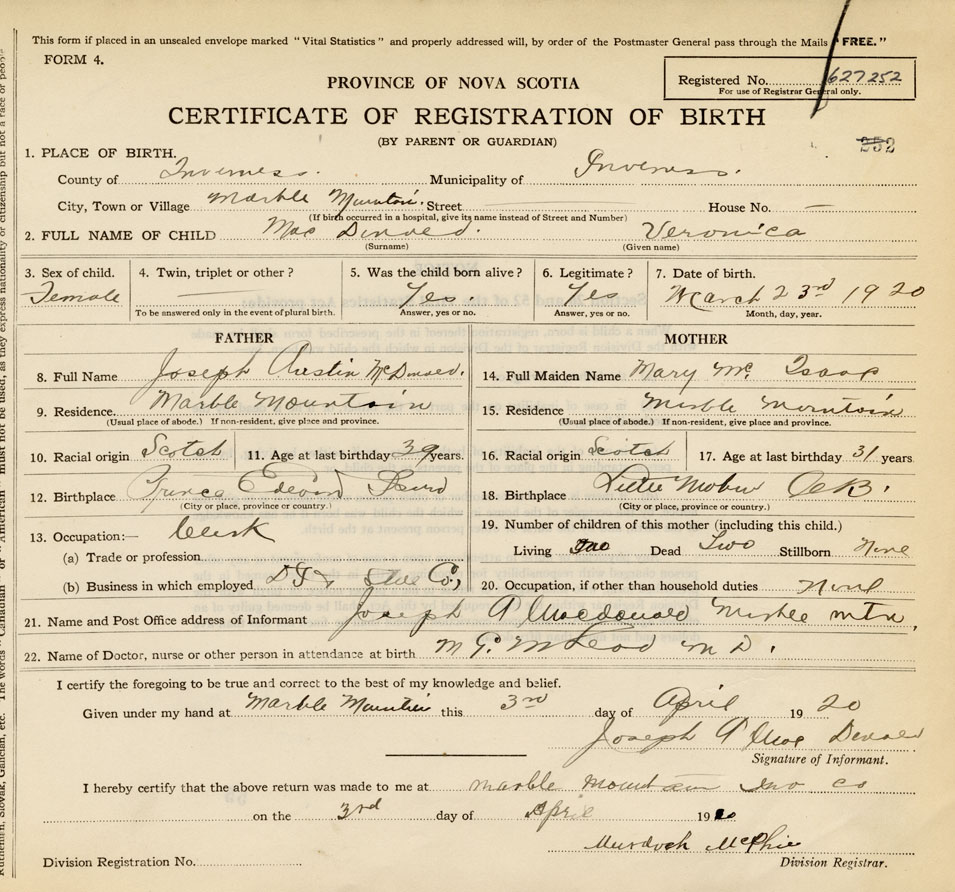 This form if placed in an unsealed envelope marked "Vital Statistics" and properly addressed will, by order of the Postmaster General pass through the Mails "FREE."
FORM 4.
Registered No. 627252
For use of Registrar General only.
PROVINCE OF NOVA SCOTIA
CERTIFICATE OF REGISTRATION OF BIRTH
(BY PARENT OR GUARDIAN)
252
1. PLACE OF BIRTH.
County of Inverness. Municipality of Inverness.
City, Town or Village Marble Mountain. Street House No. —
(If birth occurred in a hospital, give its name instead of Street and Number)
2. FULL NAME OF CHILD Mac Donald. Veronica
(Surname) (Given name)
3. Sex of child. 4. Twin, triplet or other? 5. Was the child born alive? 6. Legitimate? 7. Date of birth.
Female — Yes. Yes March 23rd 1920
To be answered only in the event of plural birth. Answer, yes or no. Answer, yes or no. Month, day, year.
FATHER MOTHER
8. Full Name Joseph Austin McDonald. 14. Full Maiden Name Mary Mc Isaac
9. Residence. Marble Mountain 15. Residence Marble Mountain
(Usual place of abode.) If non-resident, give place and province. (Usual place of abode.) If non-resident, give place and province.
10. Racial origin Scotch 11. Age at last birthday 39 years. 16. Racial origin Scotch 17. Age at last birthday 31 years
12. Birthplace Prince Edward Island 18. Birthplace
(City or place, province or country.) (City or place, province or country.)
13. Occupation:— Clerk 19. Number of children of this mother (including this child.)
(a) Trade or profession Living Two Dead Two Stillborn None
(b) Business in which employed Steel Co., 20. Occupation, if other than household duties None
21. Name and Post Office address of Informant Joseph A Macdonald Marble mtn,
22. Name of Doctor, nurse or other person in attendance at birth M G. McLeod M D.
I certify the foregoing to be true and correct to the best of my knowledge and belief.
Given under my hand at Marble Mountain this 3rd day of April 1920
Joseph A Mac Donald
Signature of Informant.
I hereby certify that the above return was made to me at marble mountain Inv Co
on the 3rd day of April 19
Murdoch McPhie
Division Registration No. Division Registrar.